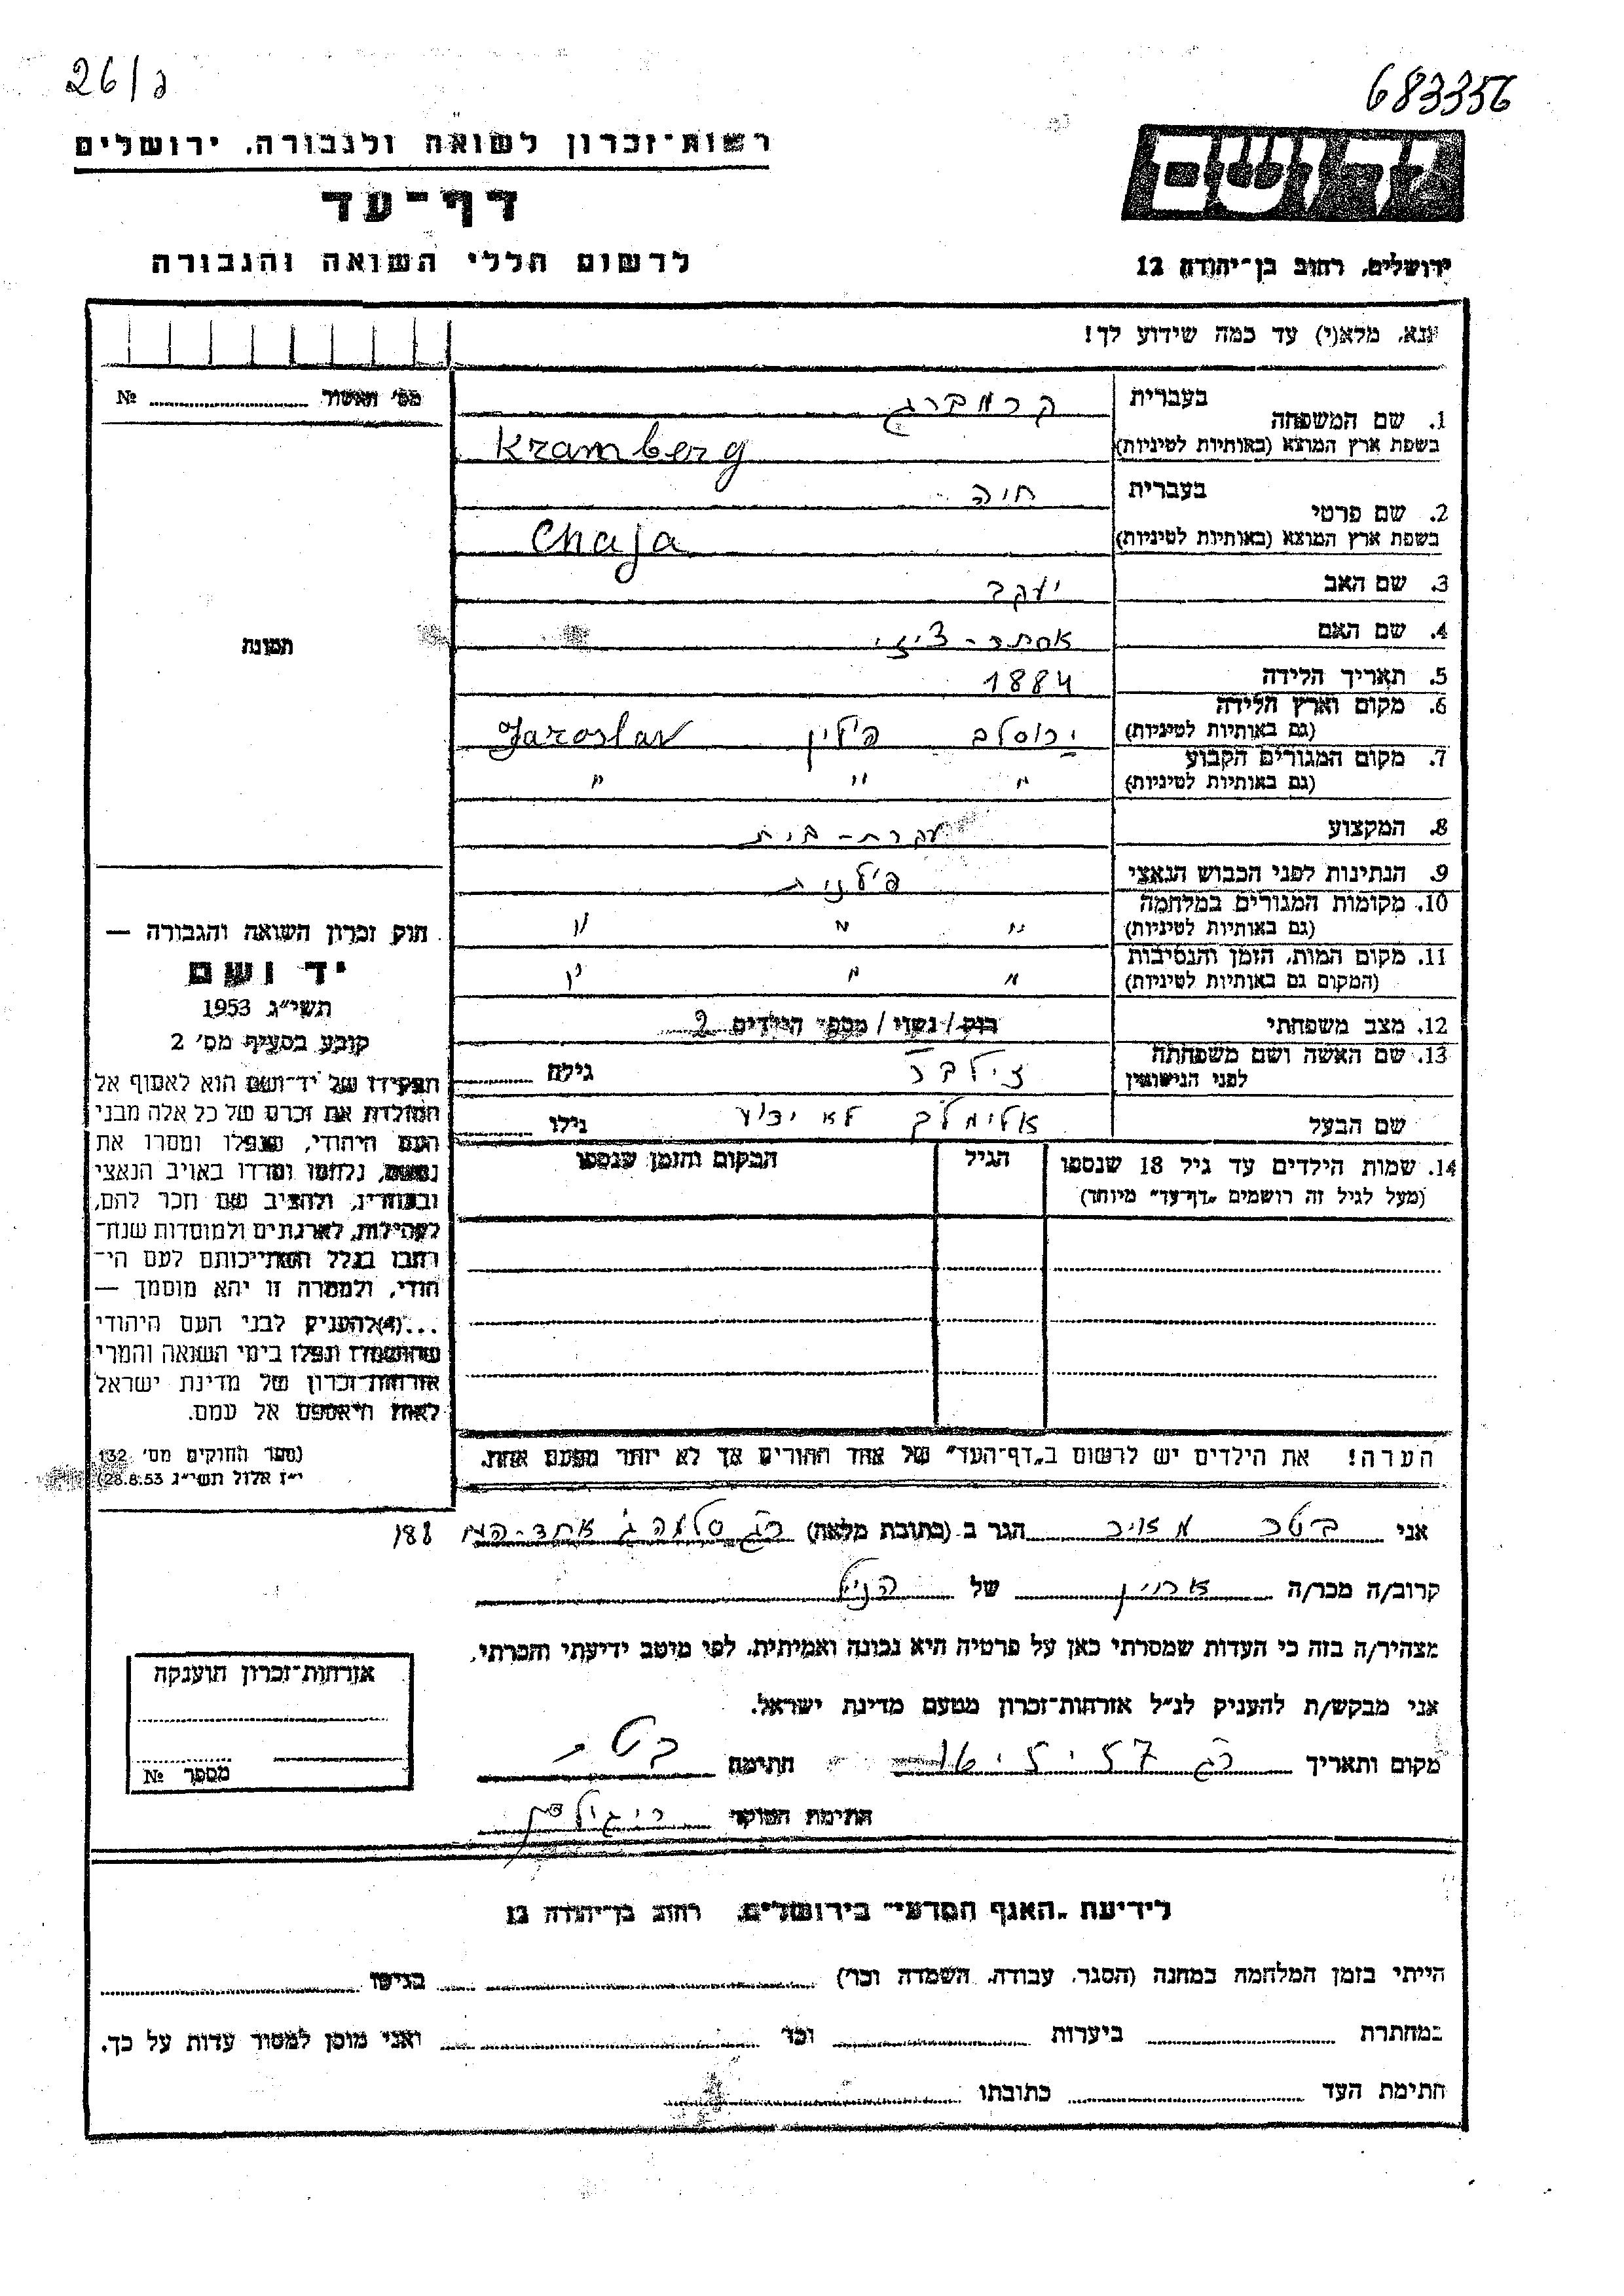 26/ג
683356
רשות־זכרון לשואה ולגבורה. ירושלים
דף־עד
לרשום חללי השואה והגבורה
יד ושם
ירושלים, רחוב בן־יהודה 12
נא, מלא(י) עד כמה שידוע לך!
מס׳ האשור № 
1. שם המשפחה
בעברית קרמברג
בשפת ארץ המוצא (באותיות לטיניות) Kramberg
2. שם פרטי
בעברית חיה
בשפת ארץ המוצא (באותיות לטיניות) Chaja
3. שם האב יעקב
4. שם האם אסתר-
5. תאריך הלידה 1884
6. מקום וארץ הלידה
(גם באותיות לטיניות) ירוסלב פולין Jaroslav
7. מקום המגורים הקבוע
(גם באותיות לטיניות) " " "
8. המקצוע עקרת-בית
9. הנתינות לפני הכבוש הנאצי
פולנית
10. מקומות המגורים במלחמה
(גם באותיות לטיניות) " " "
11. מקום המות, הזמן והנסיבות
(המקום גם באותיות לטיניות) " " "
12. מצב משפחתי רוק/נשוי/מספר הילדים 2
13. שם האשה ושם משפחתה
לפני הנישואין זילבר גילה
שם הבעל אלימלך לא ידוע גילו
14. שמות הילדים עד גיל 18 שנספו
(מעל לגיל זה רושמים „דף־עד" מיוחד)
הגיל
המקום והזמן שנספו
הערה! את הילדים יש לרשום ב„דף־העד" של אחד ההורים אך לא יותר מפעם אחת.
תמונה
חוק זכרון השואה והגבורה —
יד ושם
תשי״ג 1953
קובע בסעיף מס׳ 2
תפקידו של יד־ושם הוא לאסוף אל
המולדת את זכרם של כל אלה מבני
העם היהודי, שנפלו ומסרו את
נפשם, נלחמו ומרדו באויב הנאצי
ובעוזריו, ולהציב שם וזכר להם,
לקהילות, לארגונים ולמוסדות שנח־
רבו בגלל השתייכותם לעם הי־
הודי, ולמטרה זו יהא מוסמך —
...(4)להעניק לבני העם היהודי
שהושמדו ונפלו בימי השואה והמרי
אזרחות־זכרון של מדינת ישראל
לאות היאספם אל עמם.
(ספר החוקים מס׳ 132
י״ז אלול תשי״ג 28.8.53)
אני בטר מאיר הגר ב (כתובת מלאה) רג סלמה ג אחד-העם 188
קרוב/ה מכר/ה של הנ״ל
מצהיר/ה בזה כי העדות שמסרתי כאן על פרטיה היא נכונה ואמיתית, לפי מיטב ידיעתי והכרתי.
אני מבקש/ת להעניק לנ״ל אזרחות־זכרון מטעם מדינת ישראל.
מקום ותאריך רג חתימה
חתימת הפוקד
אזרחות־זכרון הוענקה
מספר №
לידיעת „האגף המדעי" בירושלים, רחוב בן־יהודה 12
הייתי בזמן המלחמה במחנה (הסגר, עבודה, השמדה וכו׳) בגיטו
במחתרת ביערות וכו׳ ואני מוכן למסור עדות על כך.
חתימת העד כתובתו